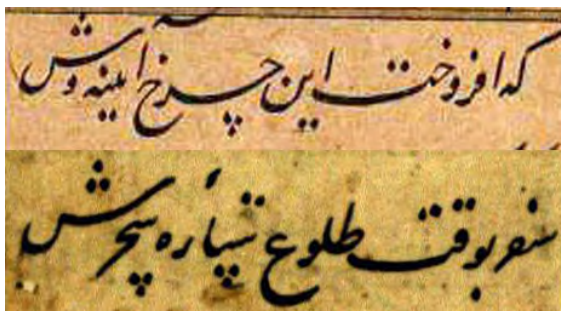 که افروخت این چرخ ایینه وش
سفر بوقت طلوع ستاره سحرش